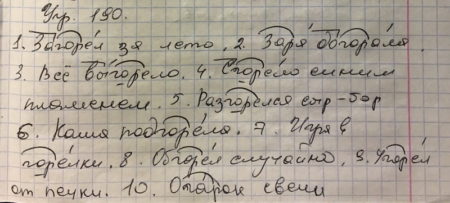 Упр. 190.
1. Загорел за лето. 2. Заря обгорала.
3. Всё выгорело. 4. Сгорело синим
пламенем. 5. Разгорелся сыр-бор
6. Каша подгорела. 7. Игра в
горелки. 8. Обгорел случайно, 9. Угорел
от печки. 10. Огарок свечи